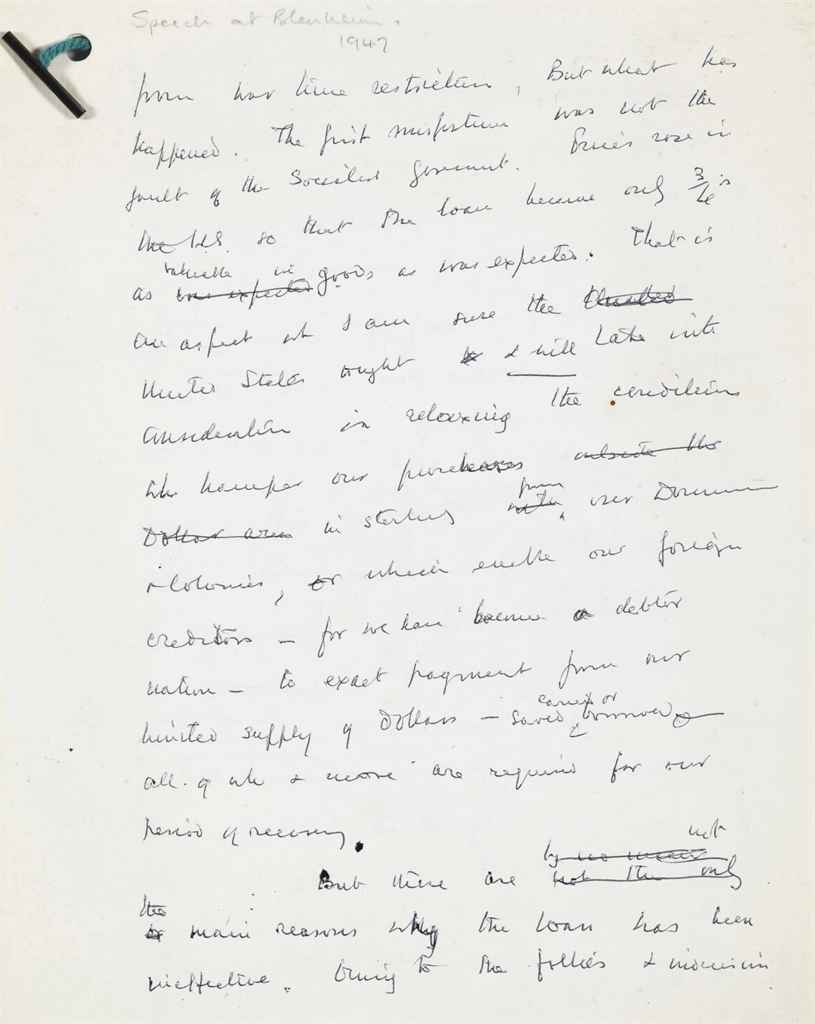 Speech at Blenheim.
1947
from war time restriction, But what has
happened. The first misfortune was not the
fault of the Socialist Government. Prices rose in
the U.S. so that the loan became only 3/4's
valuable in
as was expected goods as was expected. That is
an aspect wh I am sure the
United States ought to & will take into
consideration in relaxing the conditions
wh hamper our purchases outside the
from
Dollar area in sterling our Dominions
& Colonies, or which enable our foreign
creditors – for we have become a debtor
nation – to exact payment from our
earned or
limited supply of Dollars – saved, borrowed –
all of wh & more are required for our
period of recovery.
not
by no means
But there are not the only
the
main reasons why the loan has been
ineffective. Owing to the follies &